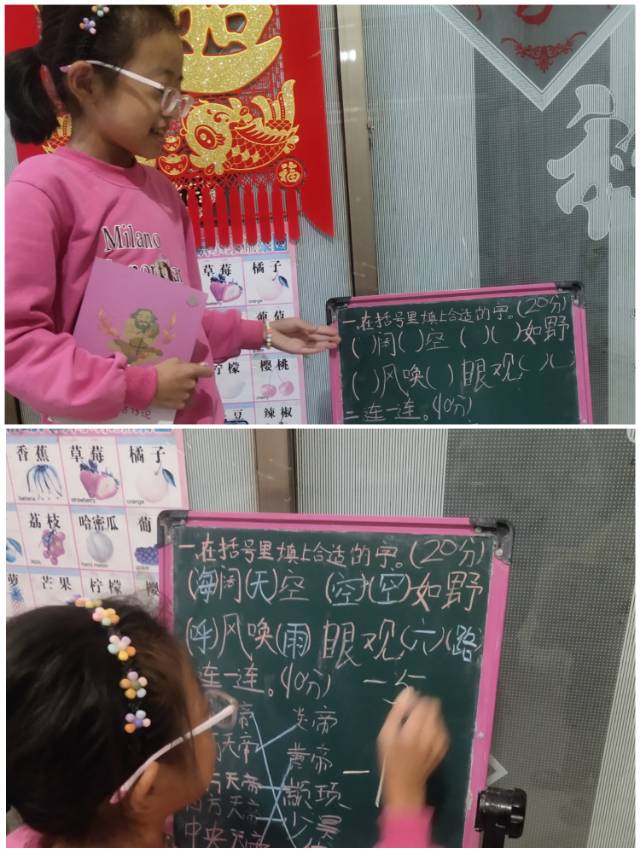 Milano
福
草莓 橘子
orange
柠檬 樱桃
豆 辣椒
一.在括号里填上合适的字。(20分)
( )阔( )空 ( )( )如野
( )风唤( ) 眼观( )( )
二连一连。(40分)
香蕉 草莓 橘子
banana strawberry orange
荔枝 哈密瓜 葡
萝 芒果 柠檬 樱
一.在括号里填上合适的字。(20分)
(海)阔(天)空 (空)(空)如野
(呼)风唤(雨) 眼观(六)(路)
连一连。(40分)
帝 炎帝
天帝 黄帝
方天帝 颛顼
方天帝 少昊
中央天帝